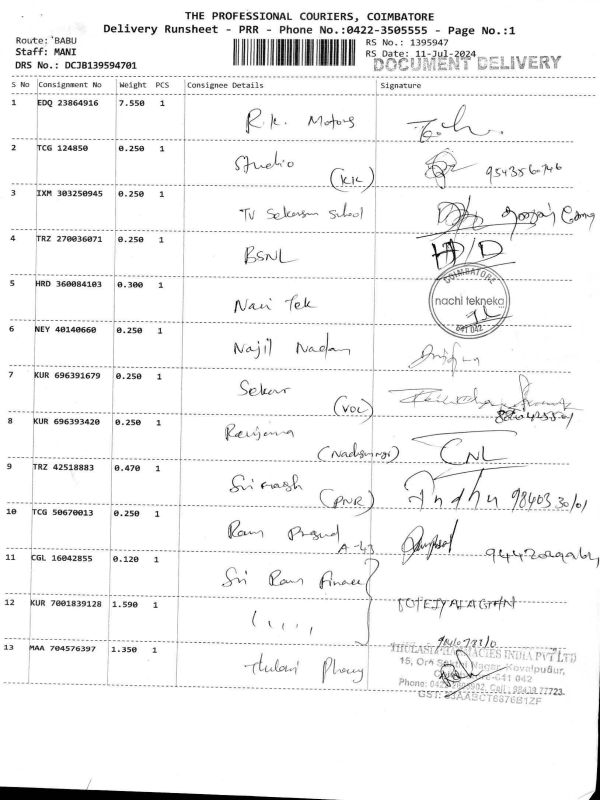 THE PROFESSIONAL COURIERS, COIMBATORE
Delivery Runsheet - PRR - Phone No.:0422-3505555 - Page No.:1
Route: BABU
Staff: MANI
DRS No.: DCJB139594701
RS No.: 1395947
RS Date: 11-Jul-2024
DOCUMENT DELIVERY
S No Consignment No Weight PCS Consignee Details Signature
1 EDQ 23864916 7.550 1 R.K. Motors
2 TCG 124850 0.250 1 Studio (KK)
3 IXM 303250945 0.250 1 TV Sekaran School
4 TRZ 270036071 0.250 1 BSNL
5 HRD 360084103 0.300 1 Navi Tek
COIMBATORE
nachi tekneka
641 042
6 NEY 40140660 0.250 1 Najil Nadan
7 KUR 696391679 0.250 1 Sekar (VOC)
8 KUR 696393420 0.250 1 CNL
9 TRZ 42518883 0.470 1 (PNR) 98403 30101
10 TCG 50670013 0.250 1 Ram Prasad A-43
11 CGL 16042855 0.120 1 Sri Ram Finance
12 KUR 7001839128 1.590 1 " " " "
13 MAA 704576397 1.350 1 Thulasi Pharmy
THULASI PHARMACIES INDIA PVT LTD
Nagar, Kovaipudur,
641 042
GST: 33AABCT6676B1ZF